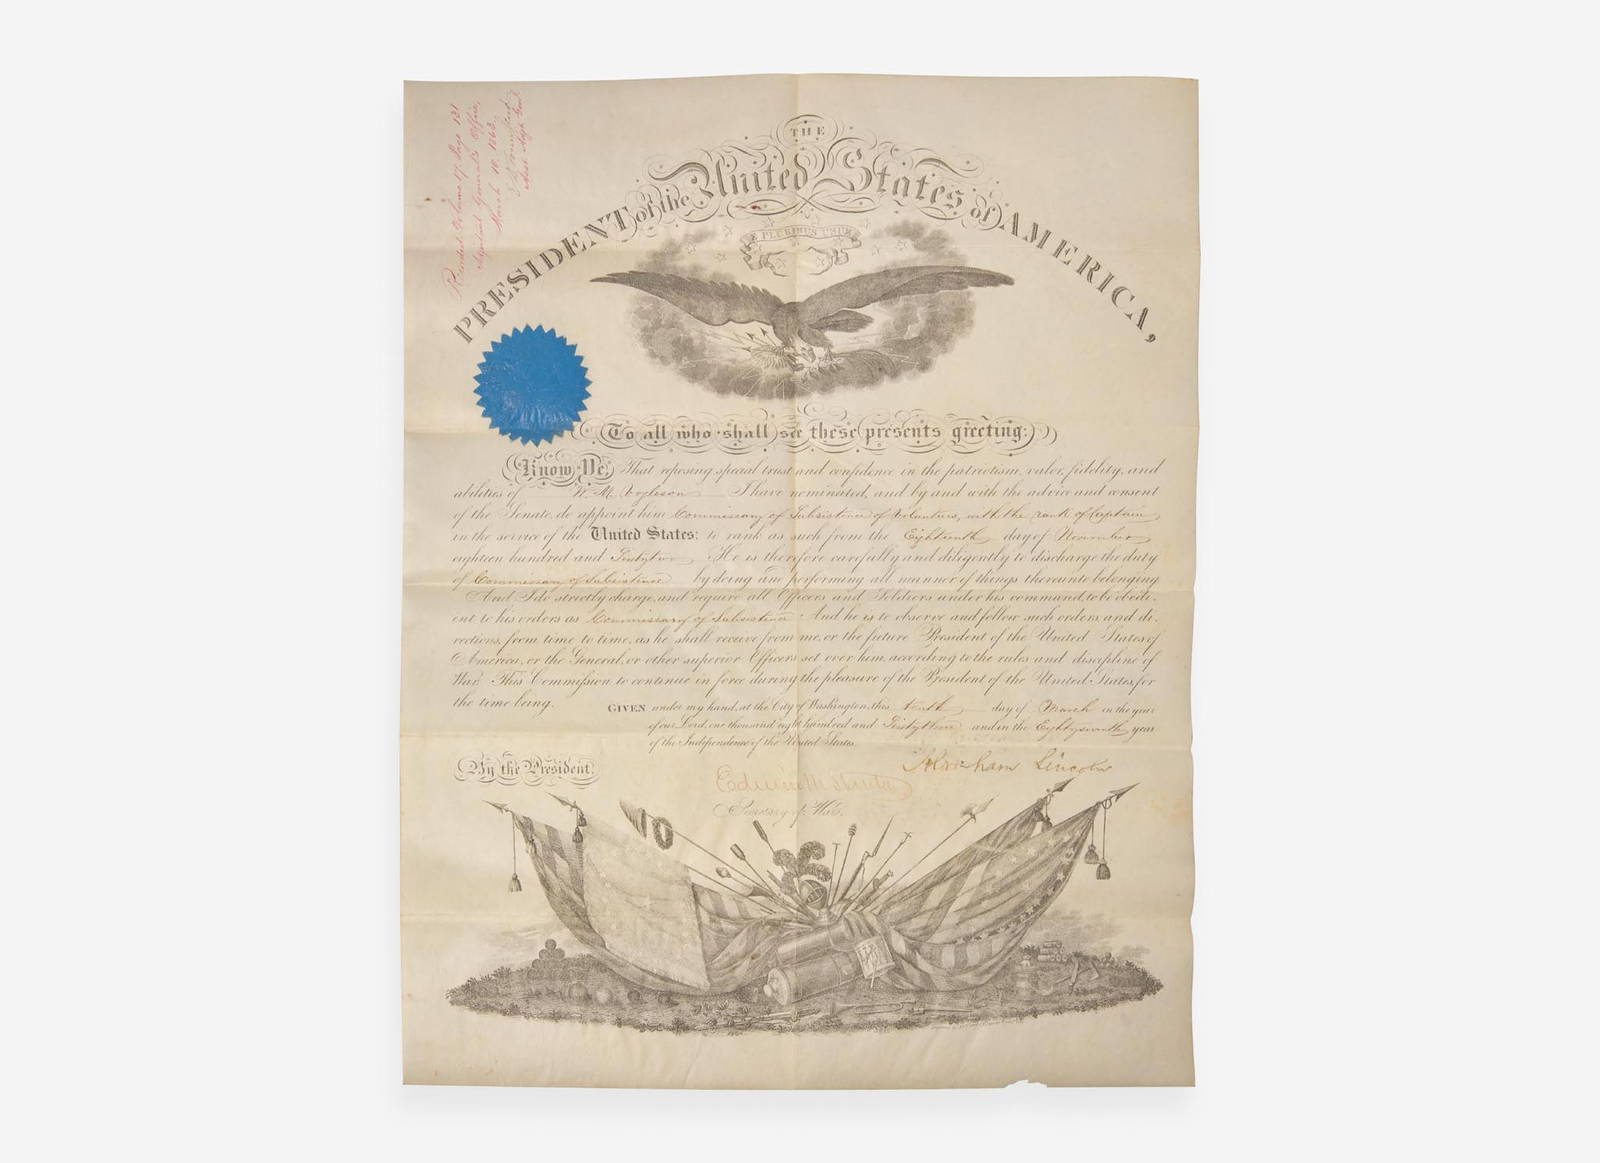 Recorded Volume 17, Page 131
Adjutant General's Office,
March 10, 1863.
Asst. Adjt. Genl.
THE
PRESIDENT of the United States of AMERICA,
E PLURIBUS UNUM
To all who shall see these presents greeting:
Know Ye, That reposing special trust and confidence in the patriotism, valor, fidelity, and
abilities of W. M. I have nominated, and by and with the advice and consent
of the Senate, do appoint him Commissary of Subsistence of Volunteers, with the rank of Captain,
in the service of the United States: to rank as such from the Eighteenth day of November
eighteen hundred and Sixtytwo He is therefore carefully and diligently to discharge the duty
of Commissary of Subsistence by doing and performing all manner of things thereunto belonging.
And I do strictly charge, and require all Officers and Soldiers under his command, to be obedi-
ent to his orders as Commissary of Subsistence And he is to observe and follow such orders, and di-
rections, from time to time, as he shall receive from me, or the future President of the United States of
America, or the General, or other superior Officers set over him, according to the rules and discipline of
War. This Commission to continue in force during the pleasure of the President of the United States, for
the time being.
GIVEN under my hand, at the City of Washington, this tenth day of March in the year
of our Lord, one thousand eight hundred and Sixtythree and in the Eightyseventh year
of the Independence of the United States.
Abraham Lincoln
By the President.
Edwin M Stanton
Secretary of War.